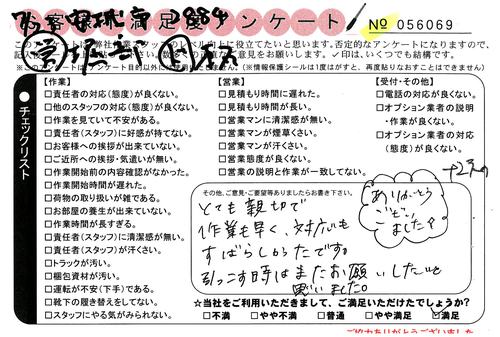 お客様満足度アンケート
No 056069
【作業】
□責任者の対応(態度)が良くない。
□他のスタッフの対応(態度)が良くない。
□作業を見ていて不安がある。
□責任者(スタッフ)に好感が持てない。
□お客様への挨拶が出来ていない。
□ご近所への挨拶・気遣いが無い。
□作業開始前の内容確認がなかった。
□作業開始時間が遅れた。
□荷物の取り扱いが雑である。
□お部屋の養生が出来ていない。
□作業時間が長すぎる。
□責任者(スタッフ)に清潔感が無い。
□責任者(スタッフ)が汗くさい。
□トラックが汚い。
□梱包資材が汚い。
□運転が不安(下手)である。
□靴下の履き替えをしてない。
□スタッフにやる気がみられない。
【営業】
□見積もりが遅れた。
□見積もり時間に長い。
□営業マンに清潔感が無い。
□営業マンが煙草くさい。
□営業マンが汗くさい。
□営業態度が良くない。
□営業の説明と作業が一致してない。
【受付・その他】
□電話の対応が良くない。
□オプション業者の説明
・作業が良くない。
□オプション業者の対応
(態度)が良くない。
チェックリスト
その他、ご意見・ご要望等ありましたらお書き下さい。
とても親切で
作業も早く、対応も
すばらしかったです。
引っこす時はまたお願いしたいと
思いました。
ありがとう
ござい
ました
☆当社をご利用いただきまして、ご満足いただけたでしょうか?
□不満 □やや不満 □普通 □やや満足 □満足
ご協力ありがとうございました